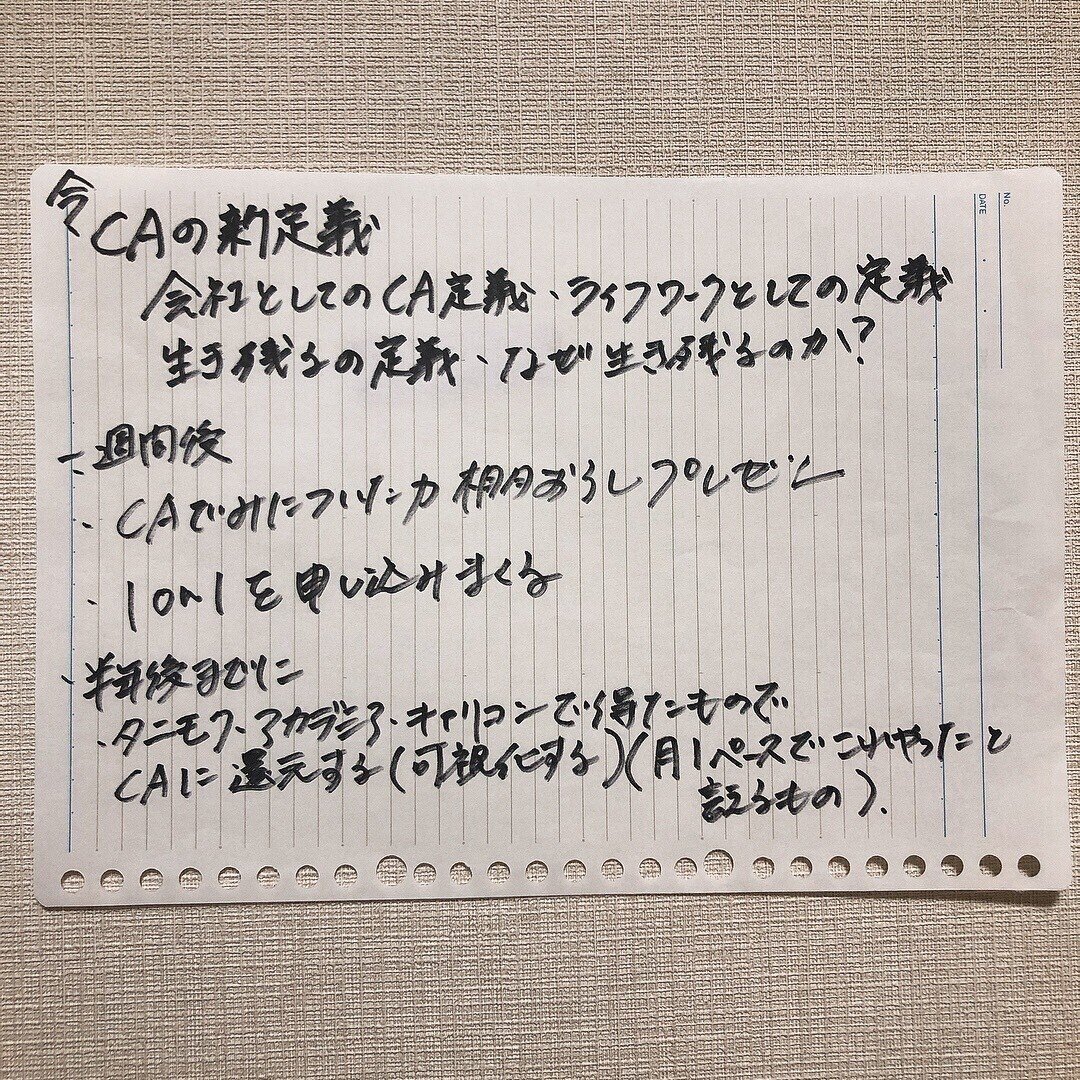 今
CAの新定義
会社としてのCA定義、ライフワークとしての定義
生き残るの定義、なぜ生き残るのか?
一週間後
・CAでみにつけた力 棚おろしプレゼン
・1on1を申し込みまくる
・半年後までに
・タニモク、アカデミア・キャリコンで得たもので
CAに還元する(可視化する)(月1ペースでこれやったと
言えるもの).
No.
DATE